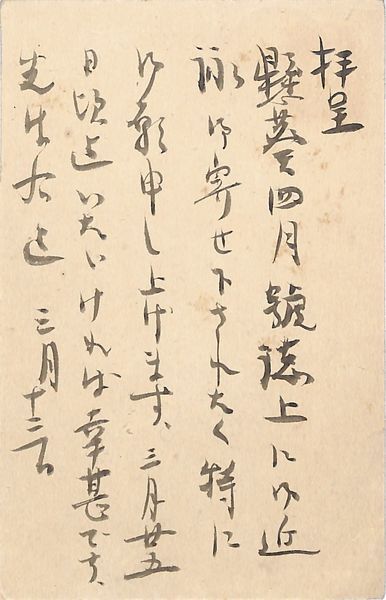 拝呈
懸葵四月號誌上に御近
詠御寄せ下されたく特に
御願申し上げます、三月廿五
日頃迄いたゞければ幸甚です、
先生右迄　三月十三日